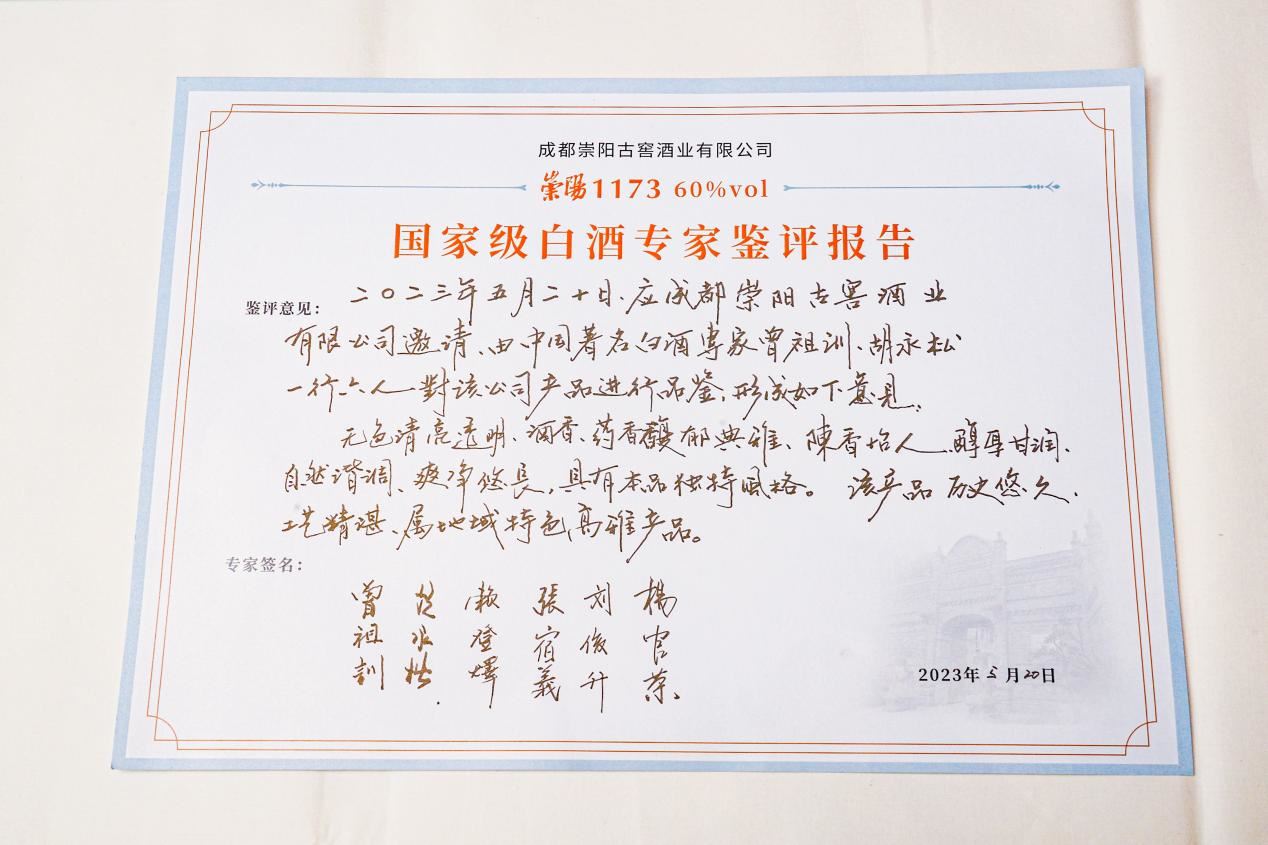 成都崇阳古窖酒业有限公司
崇陽1173 60%vol
国家级白酒专家鉴评报告
鉴评意见：二〇二三年五月二十日、应成都崇阳古窖酒业
有限公司邀请、由中国著名白酒専家曾祖训、胡永松
一行六人對该公司产品进行品鉴，形成如下意见：
无色清亮透明、酒香、药香馥郁典雅、陳香怡人、醇厚甘润、
自然谐调、爽净悠長，具有本品独特風格。该产品历史悠久、
工艺精湛、属地域特色高雅产品。
专家签名：
曾祖訓
永松
賴登燡
張宿義
刘俊升
楊官荣
2023年5月20日